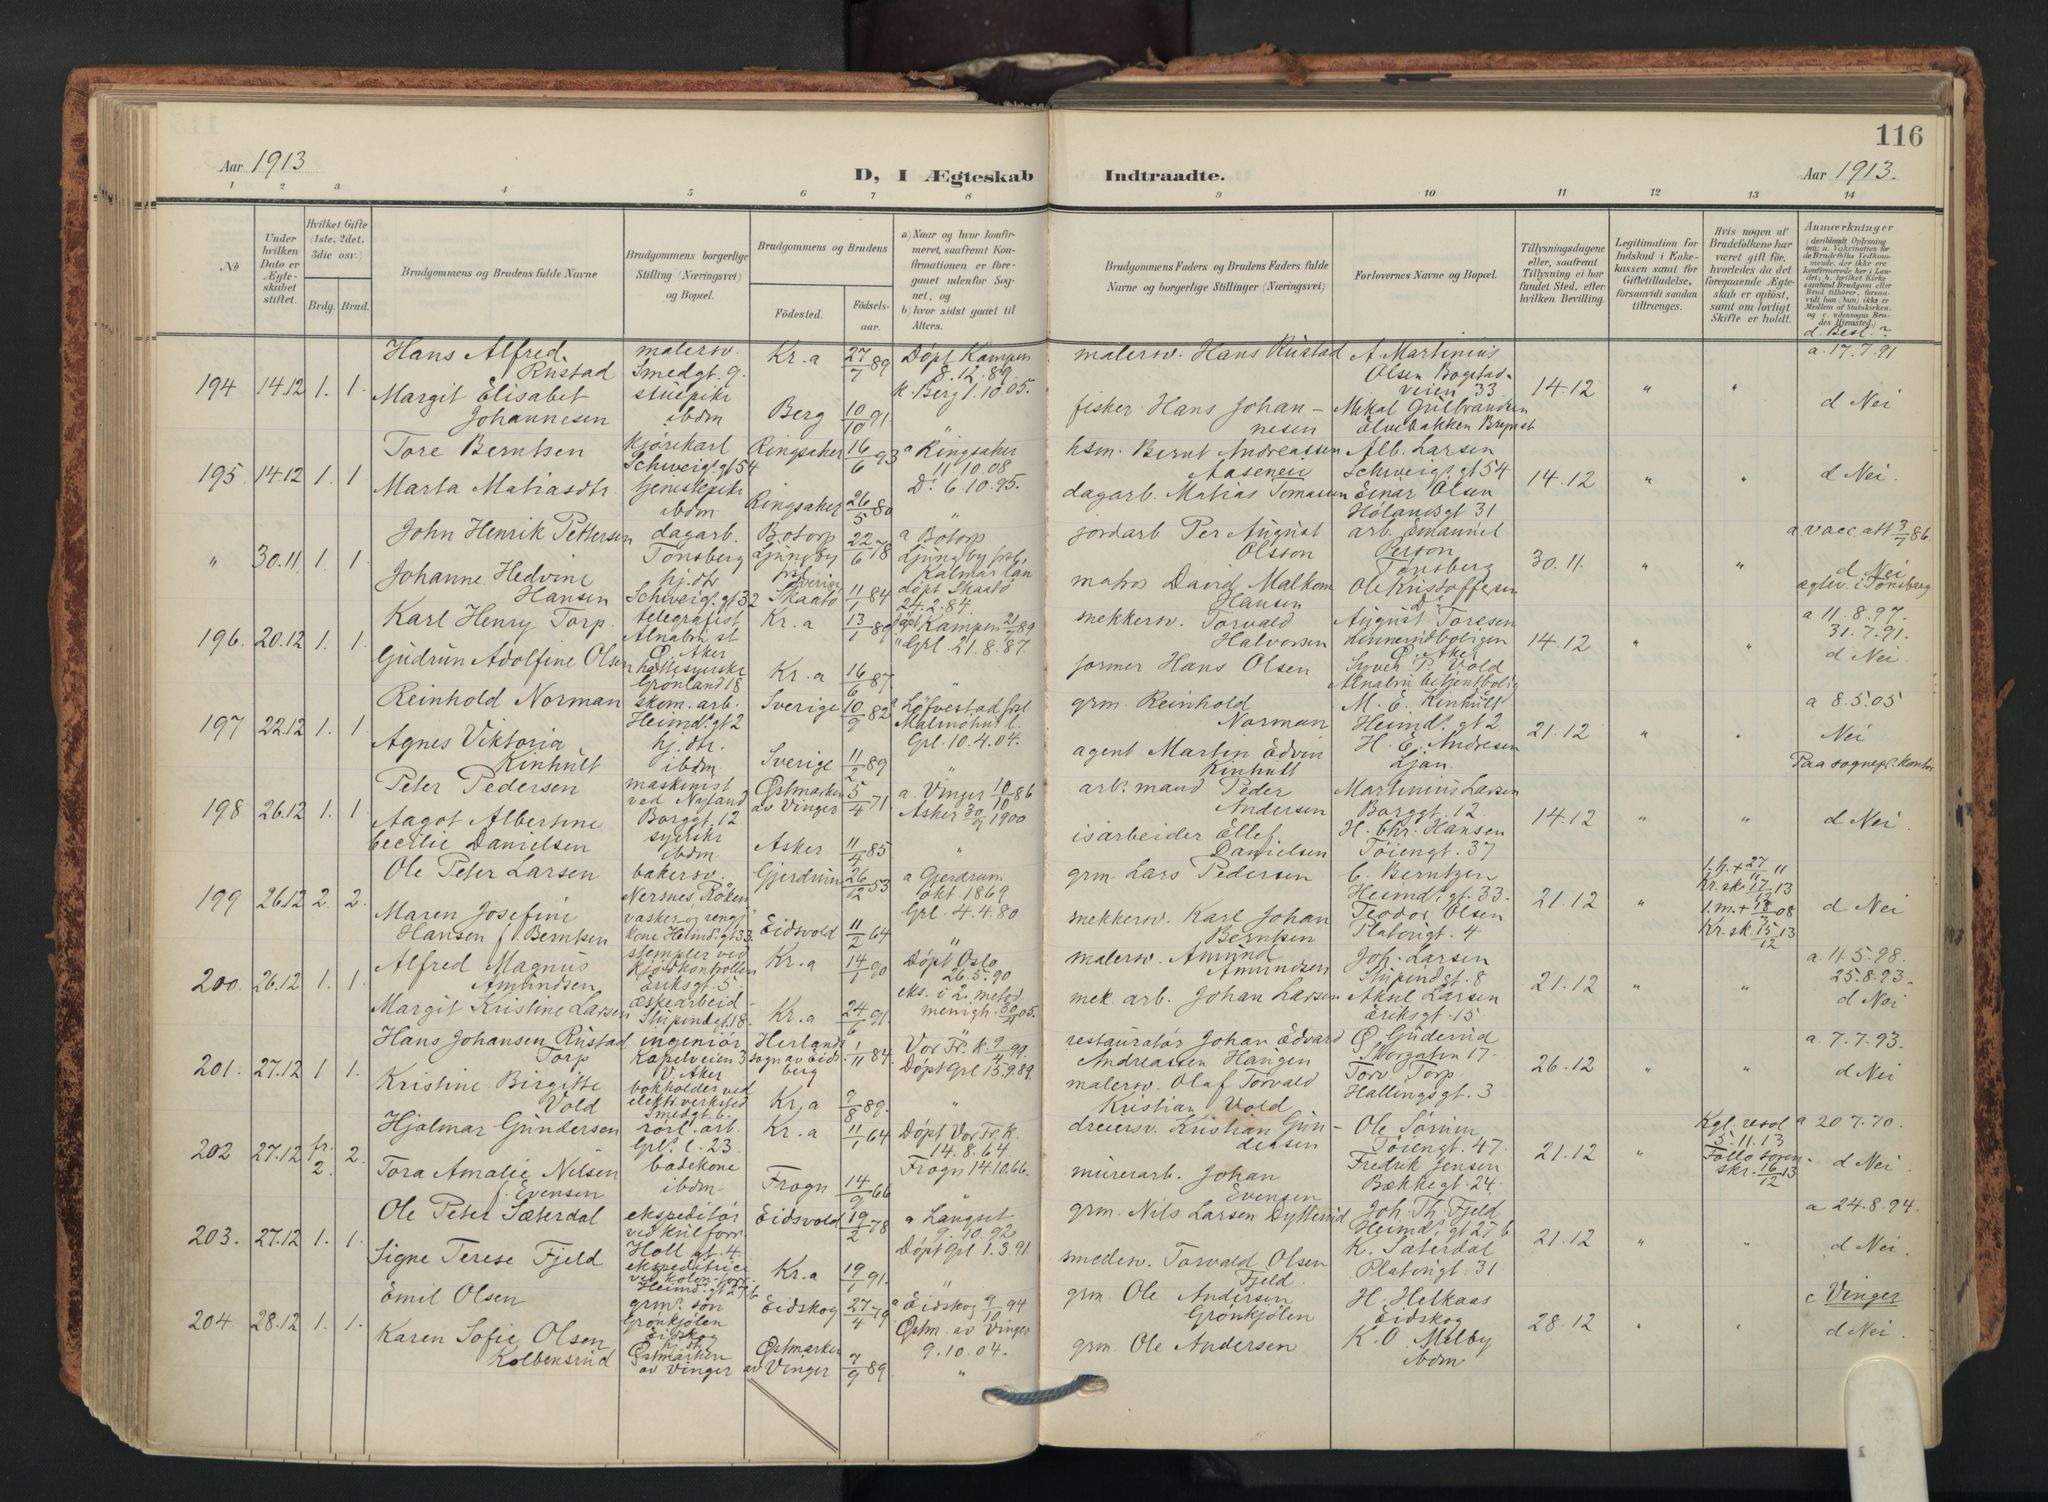 116
Aar 1913
D, I Ægteskab Indtraadte.
Aar 1913.
1 2 3 4 5 6 7 8 9 10 11 12 13 14
No
Under hvilken Dato er Ægteskabet stiftet.
Hvilket Gifte (1ste, 2det, 3die osv.)
Brdg. Brud.
Brudgommens og Brudens fulde Navne
Brudgommens borgerlige Stilling (Næringsvei) og Bopæl.
Brudgommens og Brudens
Födested.
Födselsaar.
a) Naar og hvor konfirmeret, saafremt Konfirmationen er foregaaet udenfor Sognet, og
b) hvor sidst gaaet til Alters.
Brudgommens Faders og Brudens Faders fulde Navne og borgerlige Stillinger (Næringsvei)
Forlovernes Navne og Bopæl.
Tillysningsdagene eller, saafremt Tillysning ei har fundet Sted, efter hvilken Bevilling.
Legitimation for Indskud i Enkekassen samt for Giftetilladelse, forsaavidt saadan tiltrænges.
Hvis nogen af Brudefolkene har været gift før, hvorledes da det foregaaende Ægteskab er opløst, samt om lovligt Skifte er holdt.
Anmærkninger
194 14.12 1. 1.
Hans Alfred Rustad malersv. Smedgt. 9. Kr.a 27/7 89 Døpt Kampen 8.12.89. malersv. Hans Rustad A. Martinius Olsen Bogstadveien 33 14.12 " " a. 17.7.91
Margit Elisabet Johannesen stuepike ibdm Berg 10/10 91 k. Berg 1.10.05. " fisker Hans Johannesen Mikal Gulbrandsen Elvebakken d Nei
195. 14.12 1. 1
Tore Berntsen kjørekarl Schweigs. gt 54 Ringsaker 16/6 93 a Ringsaker 11.10.08 hsm. Bernt Andreassen Alb. Larsen Schweigs. gt 54 14.12 " " d Nei.
Marta Matiasdtr tjenestepike ibdm Ringsaker 26/5 80 Do. 6.10.95. " dagarb. Matias Tomasen Einar Olsen Hølandsgt 31
" 30.11. 1. 1
John Henrik Pettersen dagarb. Tønsberg Botorp Ljungby Sverige 22/6 78 a Botorp Ljungby Kalmar län jordarb Per August Olsson arb. Emanuel Person Tønsberg 30.11. " " a. vacc.att 3/7 86.
Johanne Hedvine Hansen hj.dtr. Schweigs. gt 32 Skaatø 11/1 84 døpt Skaatø 24.2.84. matros David Malkom Hansen Ole Kristoffersen Do. d Nei
196. 20.12 1. 1.
Karl Henry Torp. telegrafist Alnabru st Ø. Aker Kr.a 13/1 89 døpt Kampen 21/4 89 snekkersv. Torvald Halvorsen August Toresen Ø. Aker 14.12 " " a 11.8.97. 31.7.91.
Gudrun Adolfine Olsen Grønland 18 Kr.a 16/6 87. " Grl. 21.8.87. " former Hans Olsen Syver P. Vold Alnabru d Nei
197 22.12 1. 1
Reinhold Norman skom. arb. Heimd. gt 2 Sverige 10/9 82 Malmöhus l. Grl. 10.4.04. grm. Reinhold Norman M. E. Kinhult Heimd. gt 2. 21.12 " " a 8.5.05
Agnes Viktoria Kinhult hj.dtr. ibdm. Sverige 11/2 89 " agent Martin Edvin Kinhult H. E. Andresen Ljan. Nei
Paa sognepr. kontor
198 26.12 1. 1
Peter Pedersen maskinist ved Nyland Borggt. 12 Østmarken av Vinger 5/4 71 a. Vinger 10/10 86 arb. mand Peder Andersen Martinius Larsen Borggt. 12. 14.12 " " d Nei.
Aagot Albertine Cecilie Danielsen syerske ibdm. Asker 11/4 85 Asker 30/9 1900 " isarbeider Ellef Danielsen H. Chr. Hansen Tøiengt. 37
199 26.12 2. 2.
Ole Peter Larsen bakersv. Nersnes, Røken Gjerdrum 26/12 53 a Gjerdrum okt. 1869 grm. Lars Pedersen C. Berntzen Heimd. gt. 33. 21.12 " d Nei
Maren Josefine Hansen f. Berntsen Heimd. gt 33. Eidsvold 11/2 64 Grl. 4.4.80 " snekkersv. Karl Johan Berntsen Teodor Olsen Platousgt. 4
200. 26.12 1. 1.
Alfred Magnus Amundsen stempler ved kjødkontrollen Eriksgt. 5 Kr.a 14/1 90 Døpt Oslo 26.5.90 malersv. Amund Amundsen Joh. Larsen Stupindgt. 8 21.12 " " a 11.5.98. 25.8.93.
Margit Kristine Larsen æskearbeid. Stupindgt. 18. Kr.a 24/6 91. eks. i 2. metod. menigh. 05. mek. arb. Johan Larsen Aksel Larsen Eriksgt. 15 d Nei
201. 27.12 1 1.
Hans Johansen Rustad Torp ingeniør Kapelveien 3 V. Aker Herlands sogn av Eidsberg 1/11 84. Vor Fr. K. 9/4 99. restauratør Johan Edvard Andreassen Haugen Ø. Guderud Storgaten 17. 26.12 " " a. 7.7.93.
Kristine Birgitte Vold bokholder ved elektr. verksted Smedgt. 6. Kr.a 9/8 89. Døpt Grl 15.9.89. " malersv. Olaf Torvald Kristian Vold Torv. Torp Hallingsgt. 3 d Nei
202 27.12 fr. 2. 2.
Hjalmar Gundersen rørl. arb. Grl. l. 23. Kr.a 11/1 64 Døpt Vor Fr. K. 14.8.64. dreiersv. Kristian Gundersen Ole Sørum Tøiengt. 47. 21.12 " Kgl. resol 5.11.13 Follo soren- skr. 16/12 13 a 20.7.70.
Tora Amalie Nilsen f. Evensen badekone ibdm Frogn 14/9 66 Frogn 14.10.66. " murerarb. Johan Evensen Fredrik Jensen Bækkegt. 24. d Nei
203. 27.12 1. 1.
Ole Peter Sæterdal ekspeditør Holl gt. 4. Eidsvold 19/2 78 a Langset 9.10.92 grm. Nils Larsen Dytterud Joh. Th. Fjeld Heimd. gt 27 b 21.12 " " a 24.8.94.
Signe Terese Fjeld ekspeditrice Heimd. gt 27 b Kr.a 19/1 91. Døpt Grl 1.3.91. " smedesv. Torvald Olsen Fjeld. K. Sæterdal Platousgt. 31 d Nei.
204. 28.12 1. 1.
Emil Olsen grm. søn Grønkjølen Eidskog Eidskog 27/4 79 a Eidskog 9/10 94 grm. Ole Andersen Grønkjølen H. Helkaas Eidskog 28.12 " " c Vinger
Karen Sofie Olsen Kolbensrud hj.dtr. Østmarken av Vinger Østmarken av Vinger 7/9 89 Østm. av Vinger 9.10.04. " grm. Ole Andersen K. O. Melby ibdm d Nei